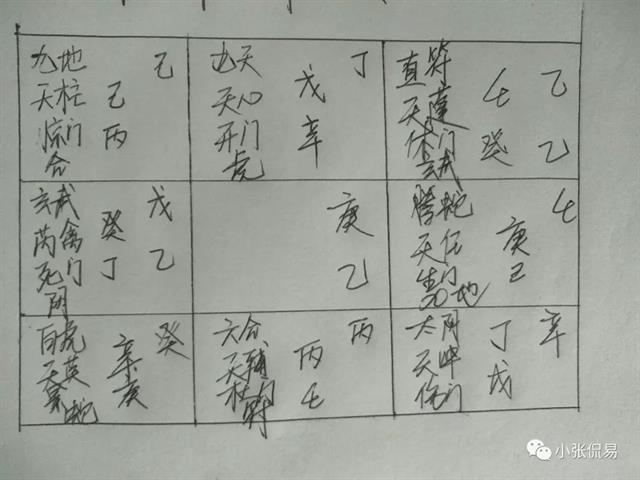 九地 己
天柱 己
惊门 丙
合
九天 丁
天心 戊
开门 辛
虎
直符 乙
天蓬 壬
休门 癸 乙
玄武
玄武 戊
芮禽 癸
死门 丁 乙
阴
庚
乙
螣蛇 壬
天任 庚
生门 己
九地
白虎 癸
天英 辛
景 庚
蛇
六合 丙
天辅 丙
杜门 壬
符
太阴 辛
天冲 丁
伤门 戊
小张侃易